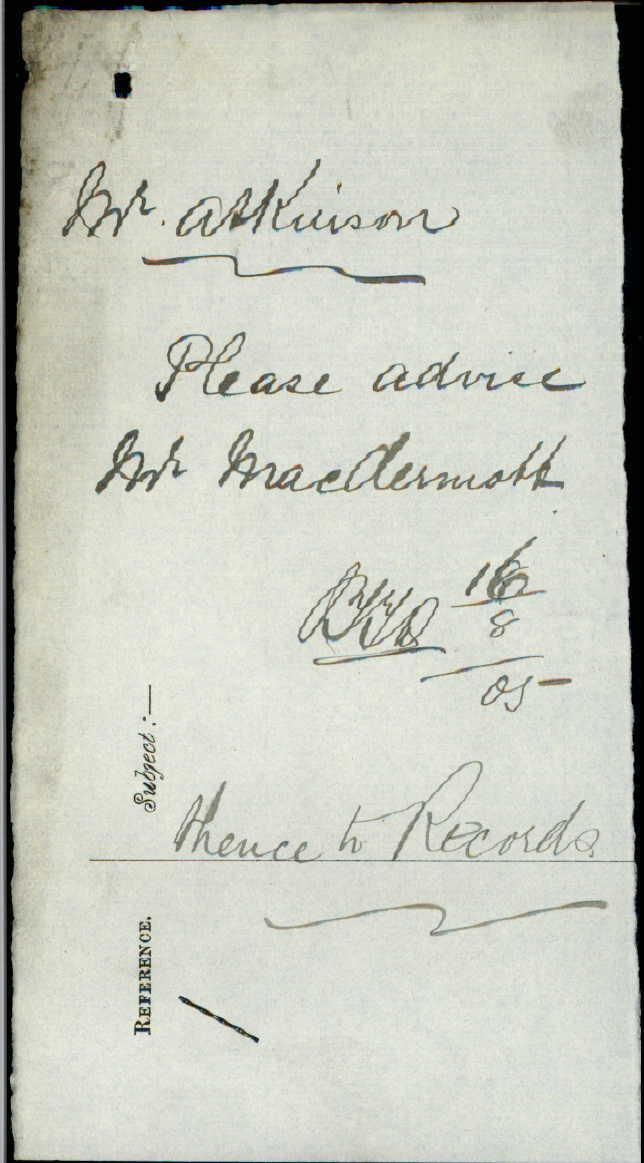 Mr. Atkinson
Please advise
Mr MacDermott
16
8
05
Subject:—
thence to Records
REFERENCE.